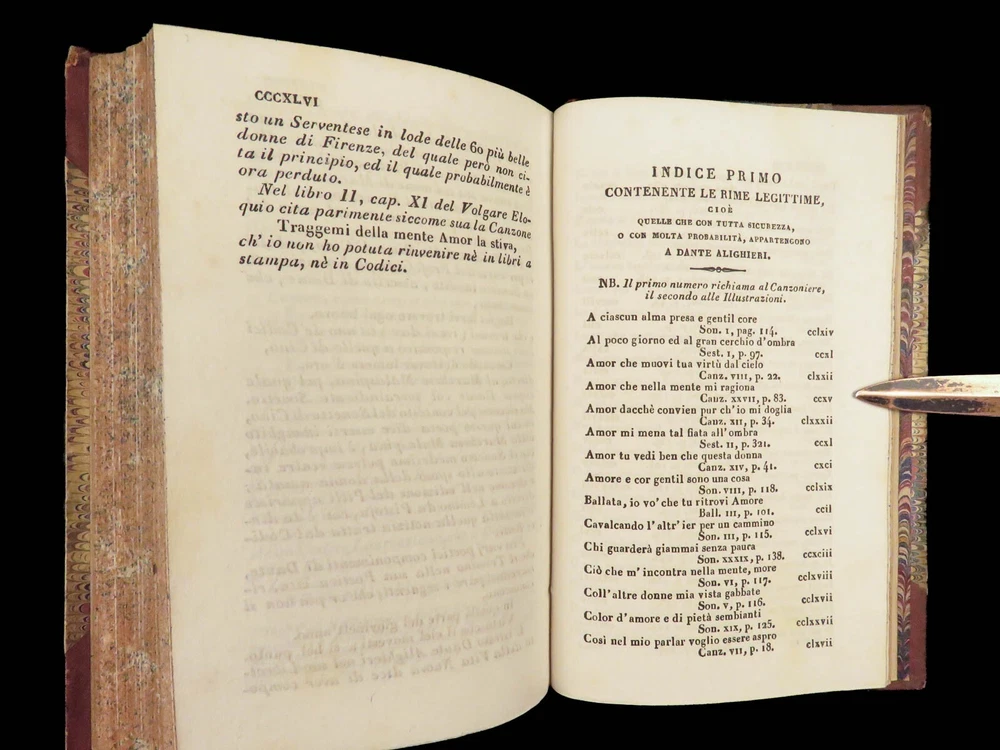 CCCXLVI
sto un Serventese in lode delle 60 più belle
donne di Firenze, del quale però non ci-
ta il principio, ed il quale probabilmente è
ora perduto.
Nel libro II, cap. XI del Volgare Elo-
quio cita parimente siccome sua la Canzone
Traggemi della mente Amor la stiva,
ch' io non ho potuta rinvenire nè in libri a
stampa, nè in Codici.
INDICE PRIMO
CONTENENTE LE RIME LEGITTIME,
CIOÈ
QUELLE CHE CON TUTTA SICUREZZA,
O CON MOLTA PROBABILITÀ, APPARTENGONO
A DANTE ALIGHIERI.
NB. Il primo numero richiama al Canzoniere,
il secondo alle Illustrazioni.
A ciascun alma presa e gentil core
Son. I, pag. 114. cclxiv
Al poco giorno ed al gran cerchio d'ombra
Sest. I, p. 97. ccxl
Amor che muovi tua virtù dal cielo
Canz. VIII, p. 22. clxxii
Amor che nella mente mi ragiona
Canz. XXVII, p. 83. ccxv
Amor dacchè convien pur ch'io mi doglia
Canz. XII, p. 34. clxxxii
Amor mi mena tal fiata all'ombra
Sest. II, p. 321. ccxl
Amor tu vedi ben che questa donna
Canz. XIV, p. 41. cxci
Amore e cor gentil sono una cosa
Son. VIII, p. 118. cclxix
Ballata, io vo' che tu ritrovi Amore
Ball. III, p. 101. ccil
Cavalcando l'altr'ier per un cammino
Son. III, p. 115. cclxvi
Chi guarderà giammai senza paura
Son. XXXIX, p. 138. ccxciii
Ciò che m'incontra nella mente, more
Son. VI, p. 117. cclxviii
Coll'altre donne mia vista gabbate
Son. V, p. 116. cclxvii
Color d'amore e di pietà sembianti
Son. XIX, p. 125. cclxxvii
Così nel mio parlar voglio essere aspro
Canz. VII, p. 18. clvii